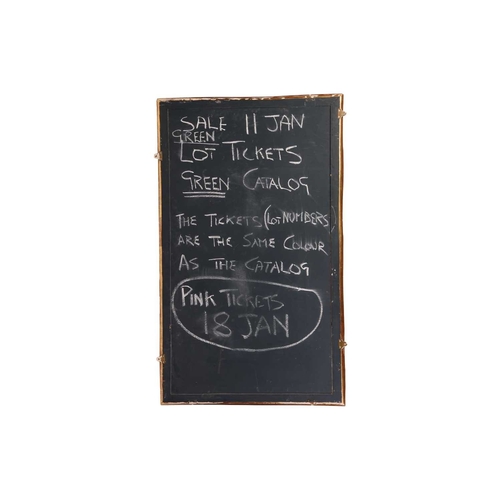 SALE 11 JAN
GREEN
LOT TICKETS
GREEN CATALOG
THE TICKETS (LOT NUMBERS
ARE THE SAME COLOUR
AS THE CATALOG
PINK TICKETS
18 JAN